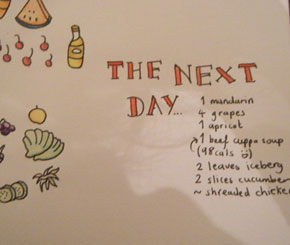 THE NEXT
DAY...
1 mandarin
4 grapes
1 apricot
1 beef cuppa soup
(98cals ☺)
2 leaves iceberg
2 slices cucumber
~ shreaded chicken